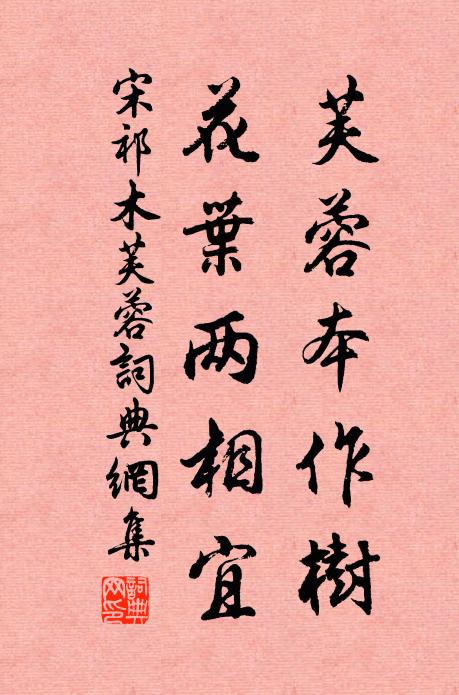 芙蓉本作樹
花葉两相宜
宋祁木芙蓉詞典網集
詞典网印